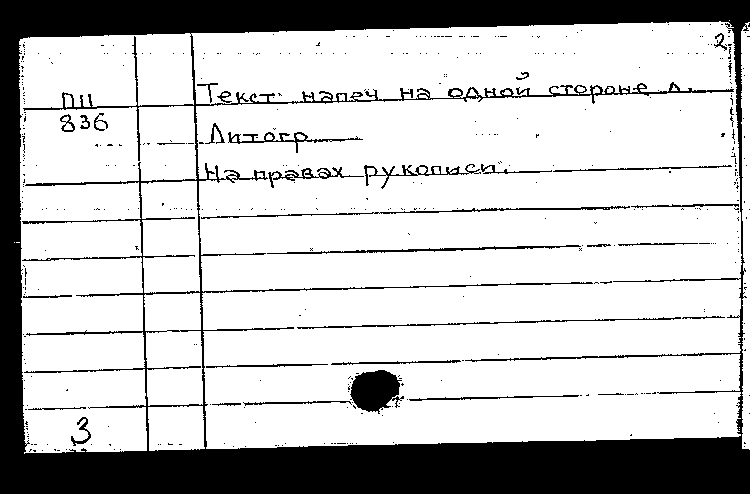 2
Текст напеч на одной стороне л.
ПII
836
Литогр.
На правах рукописи.
3